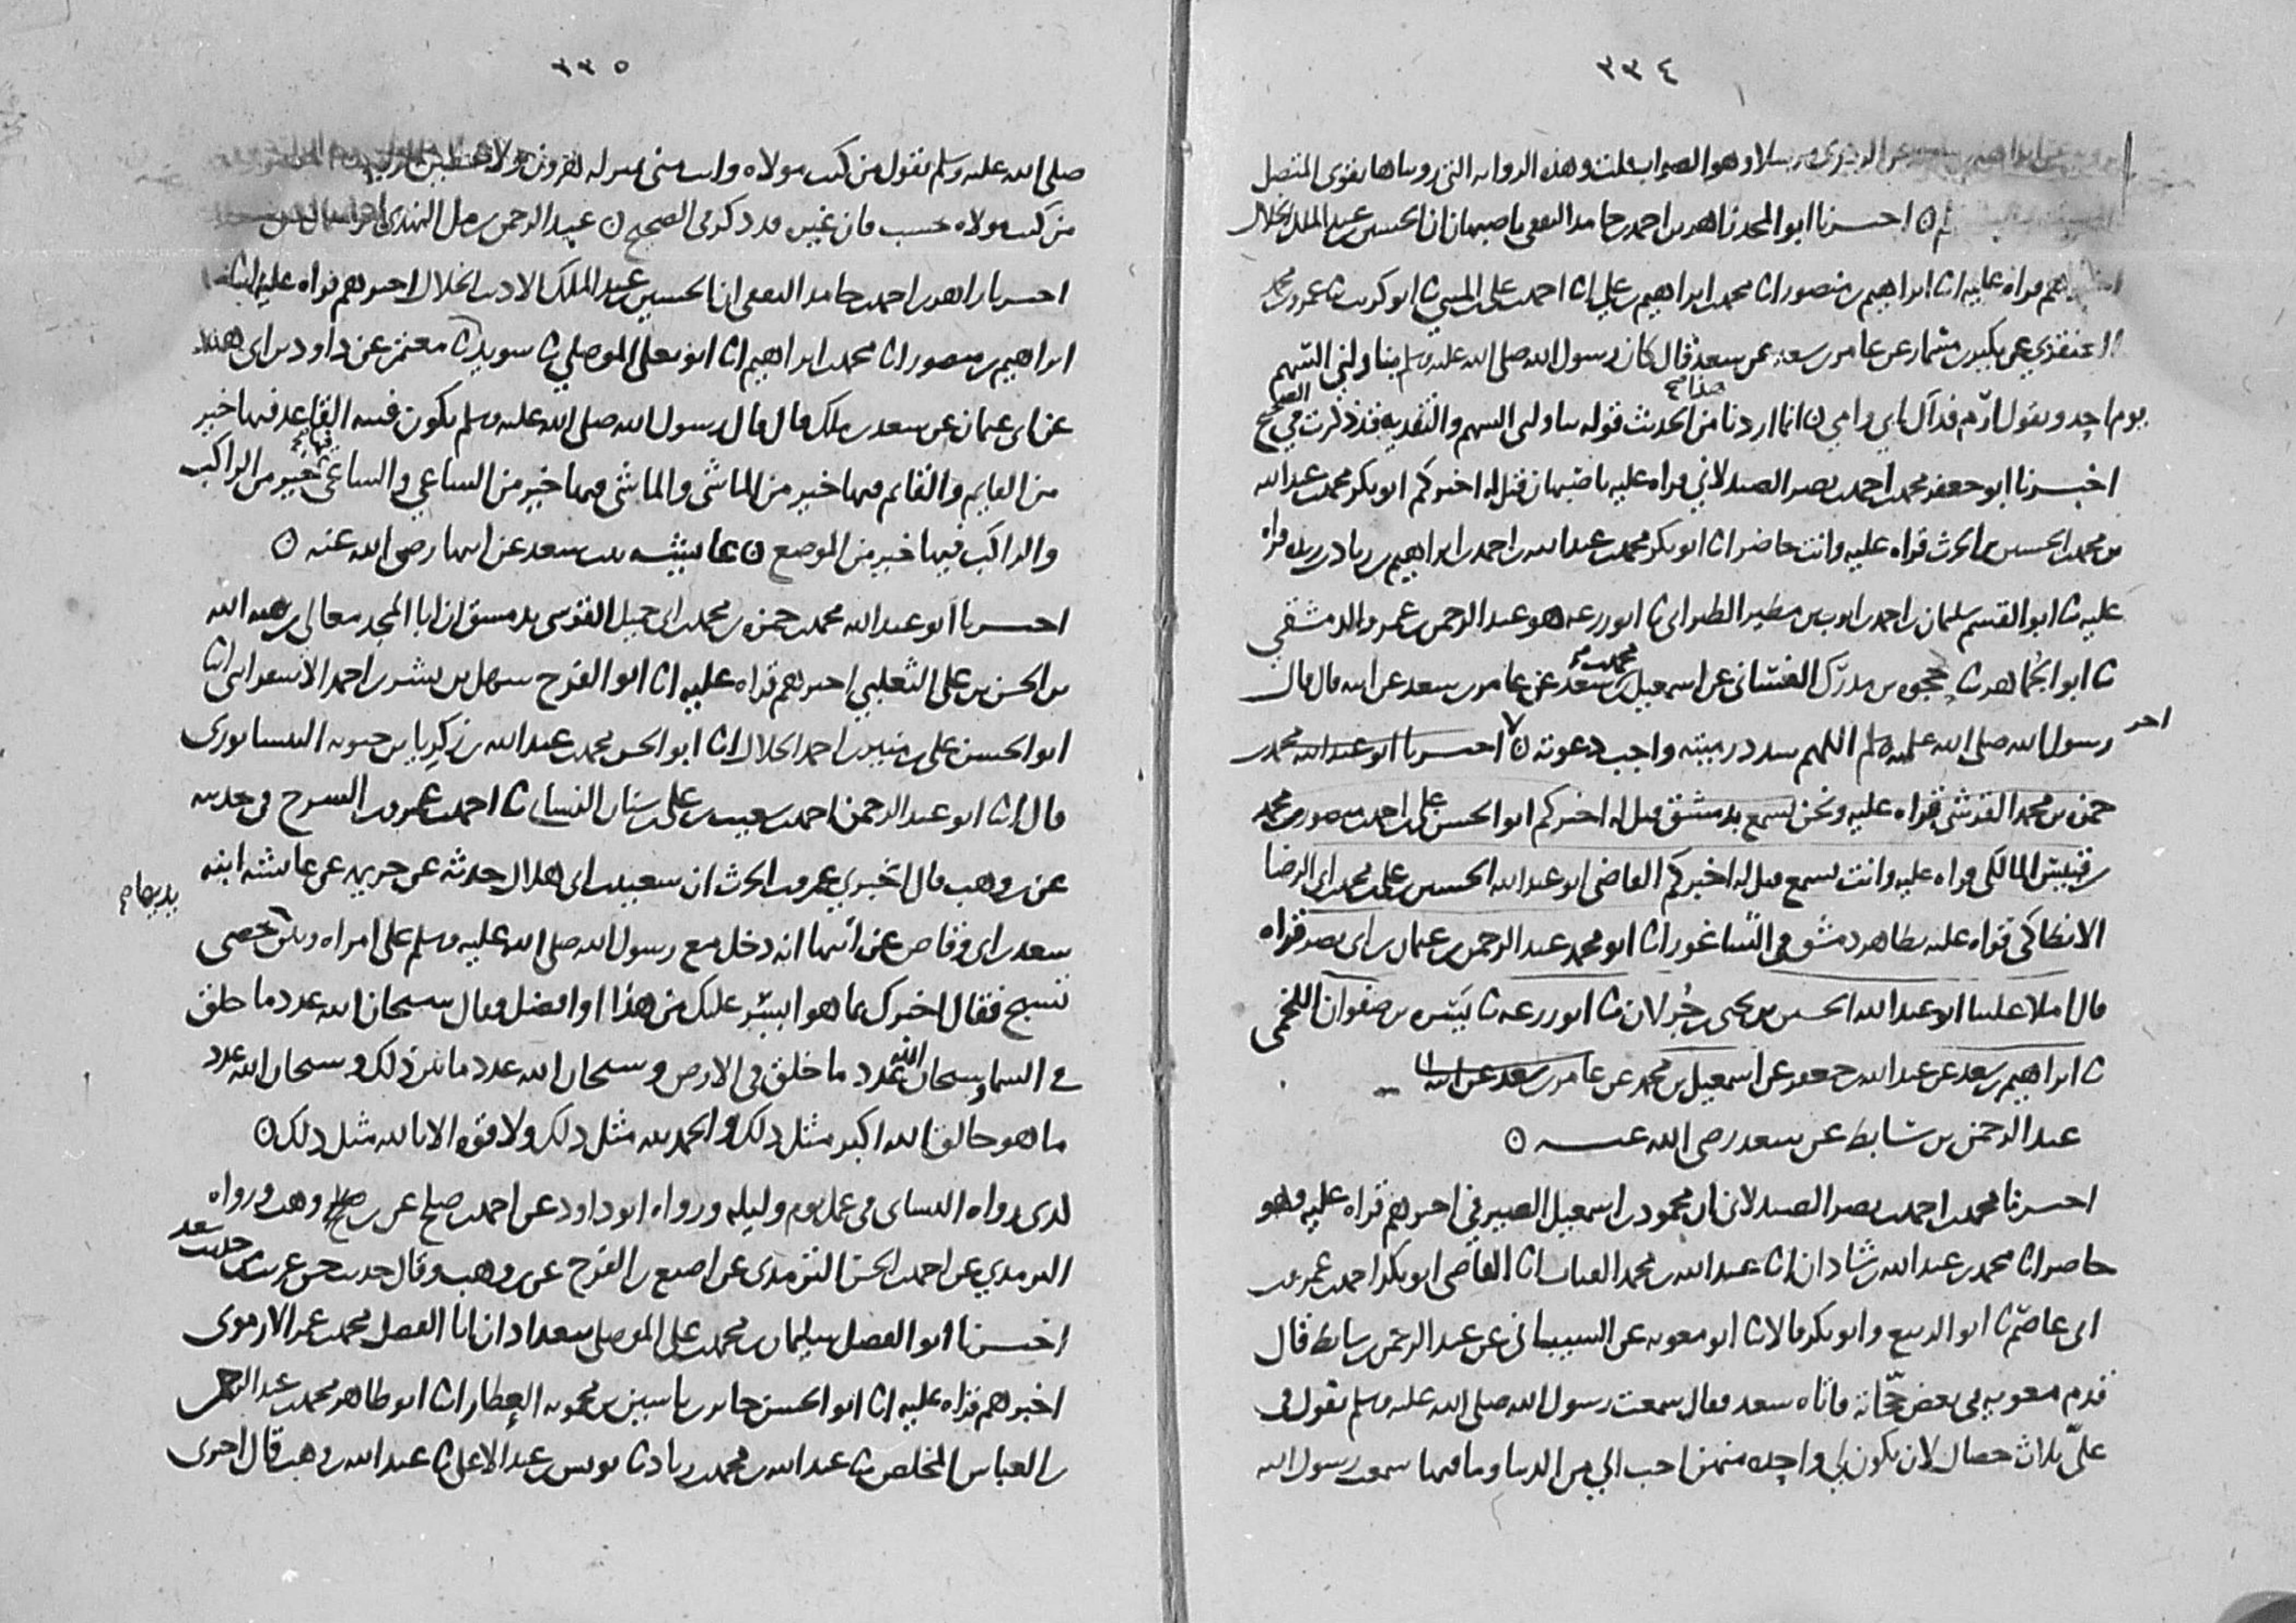 ٣٣٤
الزهري مرسلا وهو الصواب قلت وهذه الرواية التي رويناها تقوي المتصل
اخبرنا ابو المجد زاهر بن احمد بن حامد الثقفي باصبهان ان الحسين بن عبد الملك الخلال
اخبرهم قراه عليه انا ابراهيم بن منصور انا محمد بن ابراهيم بن علي انا احمد بن علي بن المثنى ثنا ابو كريب ثنا عمرو بن محمد
العنقزي عن بكير بن مسمار عن عامر بن سعد عن سعد قال كان رسول الله صلى الله عليه وسلم يناولني السهم
يوم احد ويقول ارم فداك ابي وامي ن انما اردنا من الحديث قوله يناولني السهم والتفديه فقد ذكرت في الصحيح
اخبرنا ابو جعفر محمد بن احمد بن نصر الصيدلاني قراه عليه باصبهان قيل له اخبركم ابو بكر محمد بن عبد الله
بن محمد بن الحسين بن الحرث قراه عليه وانت حاضر انا ابو بكر محمد بن عبد الله بن احمد بن ابراهيم بن ريذه قراه
عليه ثنا ابو القسم سليمان بن احمد بن ايوب بن مطير الطبراني ثنا ابو زرعه هو عبد الرحمن بن عمرو الدمشقي
ثنا ابو الجماهر ثنا بن مدرك الغساني عن اسمعيل بن محمد بن سعد عن عامر بن سعد عن ابيه قال قال
رسول الله صلى الله عليه وسلم اللهم سدد رميته واجب دعوته ن اخبرنا ابو عبد الله محمد بن
حمزه بن محمد القرشي قراه عليه ونحن نسمع بدمشق قيل له اخبركم ابو الحسن علي بن احمد بن منصور بن محمد
بن قبيس المالكي قراه عليه وانت تسمع قيل له اخبركم القاضي ابو عبد الله الحسين بن علي بن محمد بن ابي الرضا
الانطاكي قراه عليه بظاهر دمشق في الشاغور انا ابو محمد عبد الرحمن بن عثمان بن ابي نصر قراه
قال املا علينا ابو عبد الله الحسين بن يحيى بن جزلان ثنا ابو زرعه ثنا يسره بن صفوان اللخمي
ثنا ابراهيم بن سعد عن عبد الله بن جعفر عن اسمعيل بن محمد عن عامر بن سعد عن ابيه
عبد الرحمن بن سابط عن سعد رضي الله عنه ن
اخبرنا محمد بن احمد بن نصر الصيدلاني ان محمود بن اسمعيل الصيرفي اخبرهم قراه عليه وهو
حاضر انا محمد بن عبد الله بن شاذان انا عبد الله بن محمد القباب انا القاضي ابو بكر احمد بن عمرو بن
ابي عاصم ثنا ابو الربيع وابو بكر قالا ثنا ابو معويه عن الشيباني عن عبد الرحمن بن سابط قال
قدم معويه في بعض حجاته فاتاه سعد فقال سمعت رسول الله صلى الله عليه وسلم يقول في
علي ثلاث خصال لان يكون لي واحده منهن احب الي من الدنيا وما فيها سمعت رسول الله
٣٣٥
صلى الله عليه وسلم يقول من كنت مولاه وانت مني بمنزله هرون
من كنت مولاه حسب فان غيره قد ذكر في الصحيح ن عبد الرحمن بن مل النهدي
اخبرنا زاهر بن احمد بن حامد الثقفي ان الحسين بن عبد الملك الاديب الخلال اخبرهم قراه عليه انا
ابراهيم بن منصور انا محمد بن ابراهيم انا ابو يعلى الموصلي ثنا سويد ثنا معتمر عن داود بن ابي هند
عن ابي عثمان عن سعد بن ملك قال قال رسول الله صلى الله عليه وسلم يكون فتنه القاعد فيها خير
من القايم والقايم فيها خير من الماشي والماشي فيها خير من الساعي والساعي فيها خير من الراكب
والراكب فيها خير من الموضع ن عايشه بنت سعد عن ابيها رضي الله عنه ن
اخبرنا ابو عبد الله محمد بن حمزه بن محمد بن ابي جميل القرشي بدمشق ان ابا المجد معالي بن هبه الله
بن الحسن بن علي الثعلبي اخبرهم قراه عليه انا ابو الفرج سهل بن بشر بن احمد الاسفرايني انا
ابو الحسن علي بن منير بن احمد الخلال انا ابو الحسن محمد بن عبد الله بن زكريا بن حيويه النيسابوري
قال انا ابو عبد الرحمن احمد بن شعيب بن علي بن سنان النسائي ثنا احمد بن عمرو بن السرح في حديثه
عن بن وهب قال اخبرني عمرو بن الحرث ان سعيد بن ابي هلال حدثه عن خزيمه عن عائشه ابنه
سعد بن ابي وقاص عن ابيها انه دخل مع رسول الله صلى الله عليه وسلم على امراه وبين يديها حصى
تسبح فقال اخبرك بما هو ايسر عليك من هذا او افضل فقال سبحان الله عدد ما خلق
في السما وسبحان الله عدد ما خلق في الارض وسبحان الله عدد ما بين ذلك وسبحان الله عدد
ما هو خالق الله اكبر مثل ذلك والحمد لله مثل ذلك ولا قوه الا بالله مثل ذلك ن
كذى رواه النساي في عمل يوم وليله ورواه ابو داود عن احمد بن صالح عن بن وهب ورواه
الترمذي عن احمد بن الحسن الترمذي عن اصبغ بن الفرج عن بن وهب وقال حديث حسن غريب من حديث سعد
اخبرنا ابو الفضل سليمان بن محمد بن علي الموصلي ببغداد ان ابا الفضل محمد بن عمر الارموي
اخبرهم قراه عليه انا ابو الحسن جابر بن ياسين بن محمويه العطار انا ابو طاهر محمد بن عبد الرحمن
بن العباس المخلص ثنا عبد الله بن محمد بن زياد ثنا يونس بن عبد الاعلى ثنا عبد الله بن وهب قال اخبرني